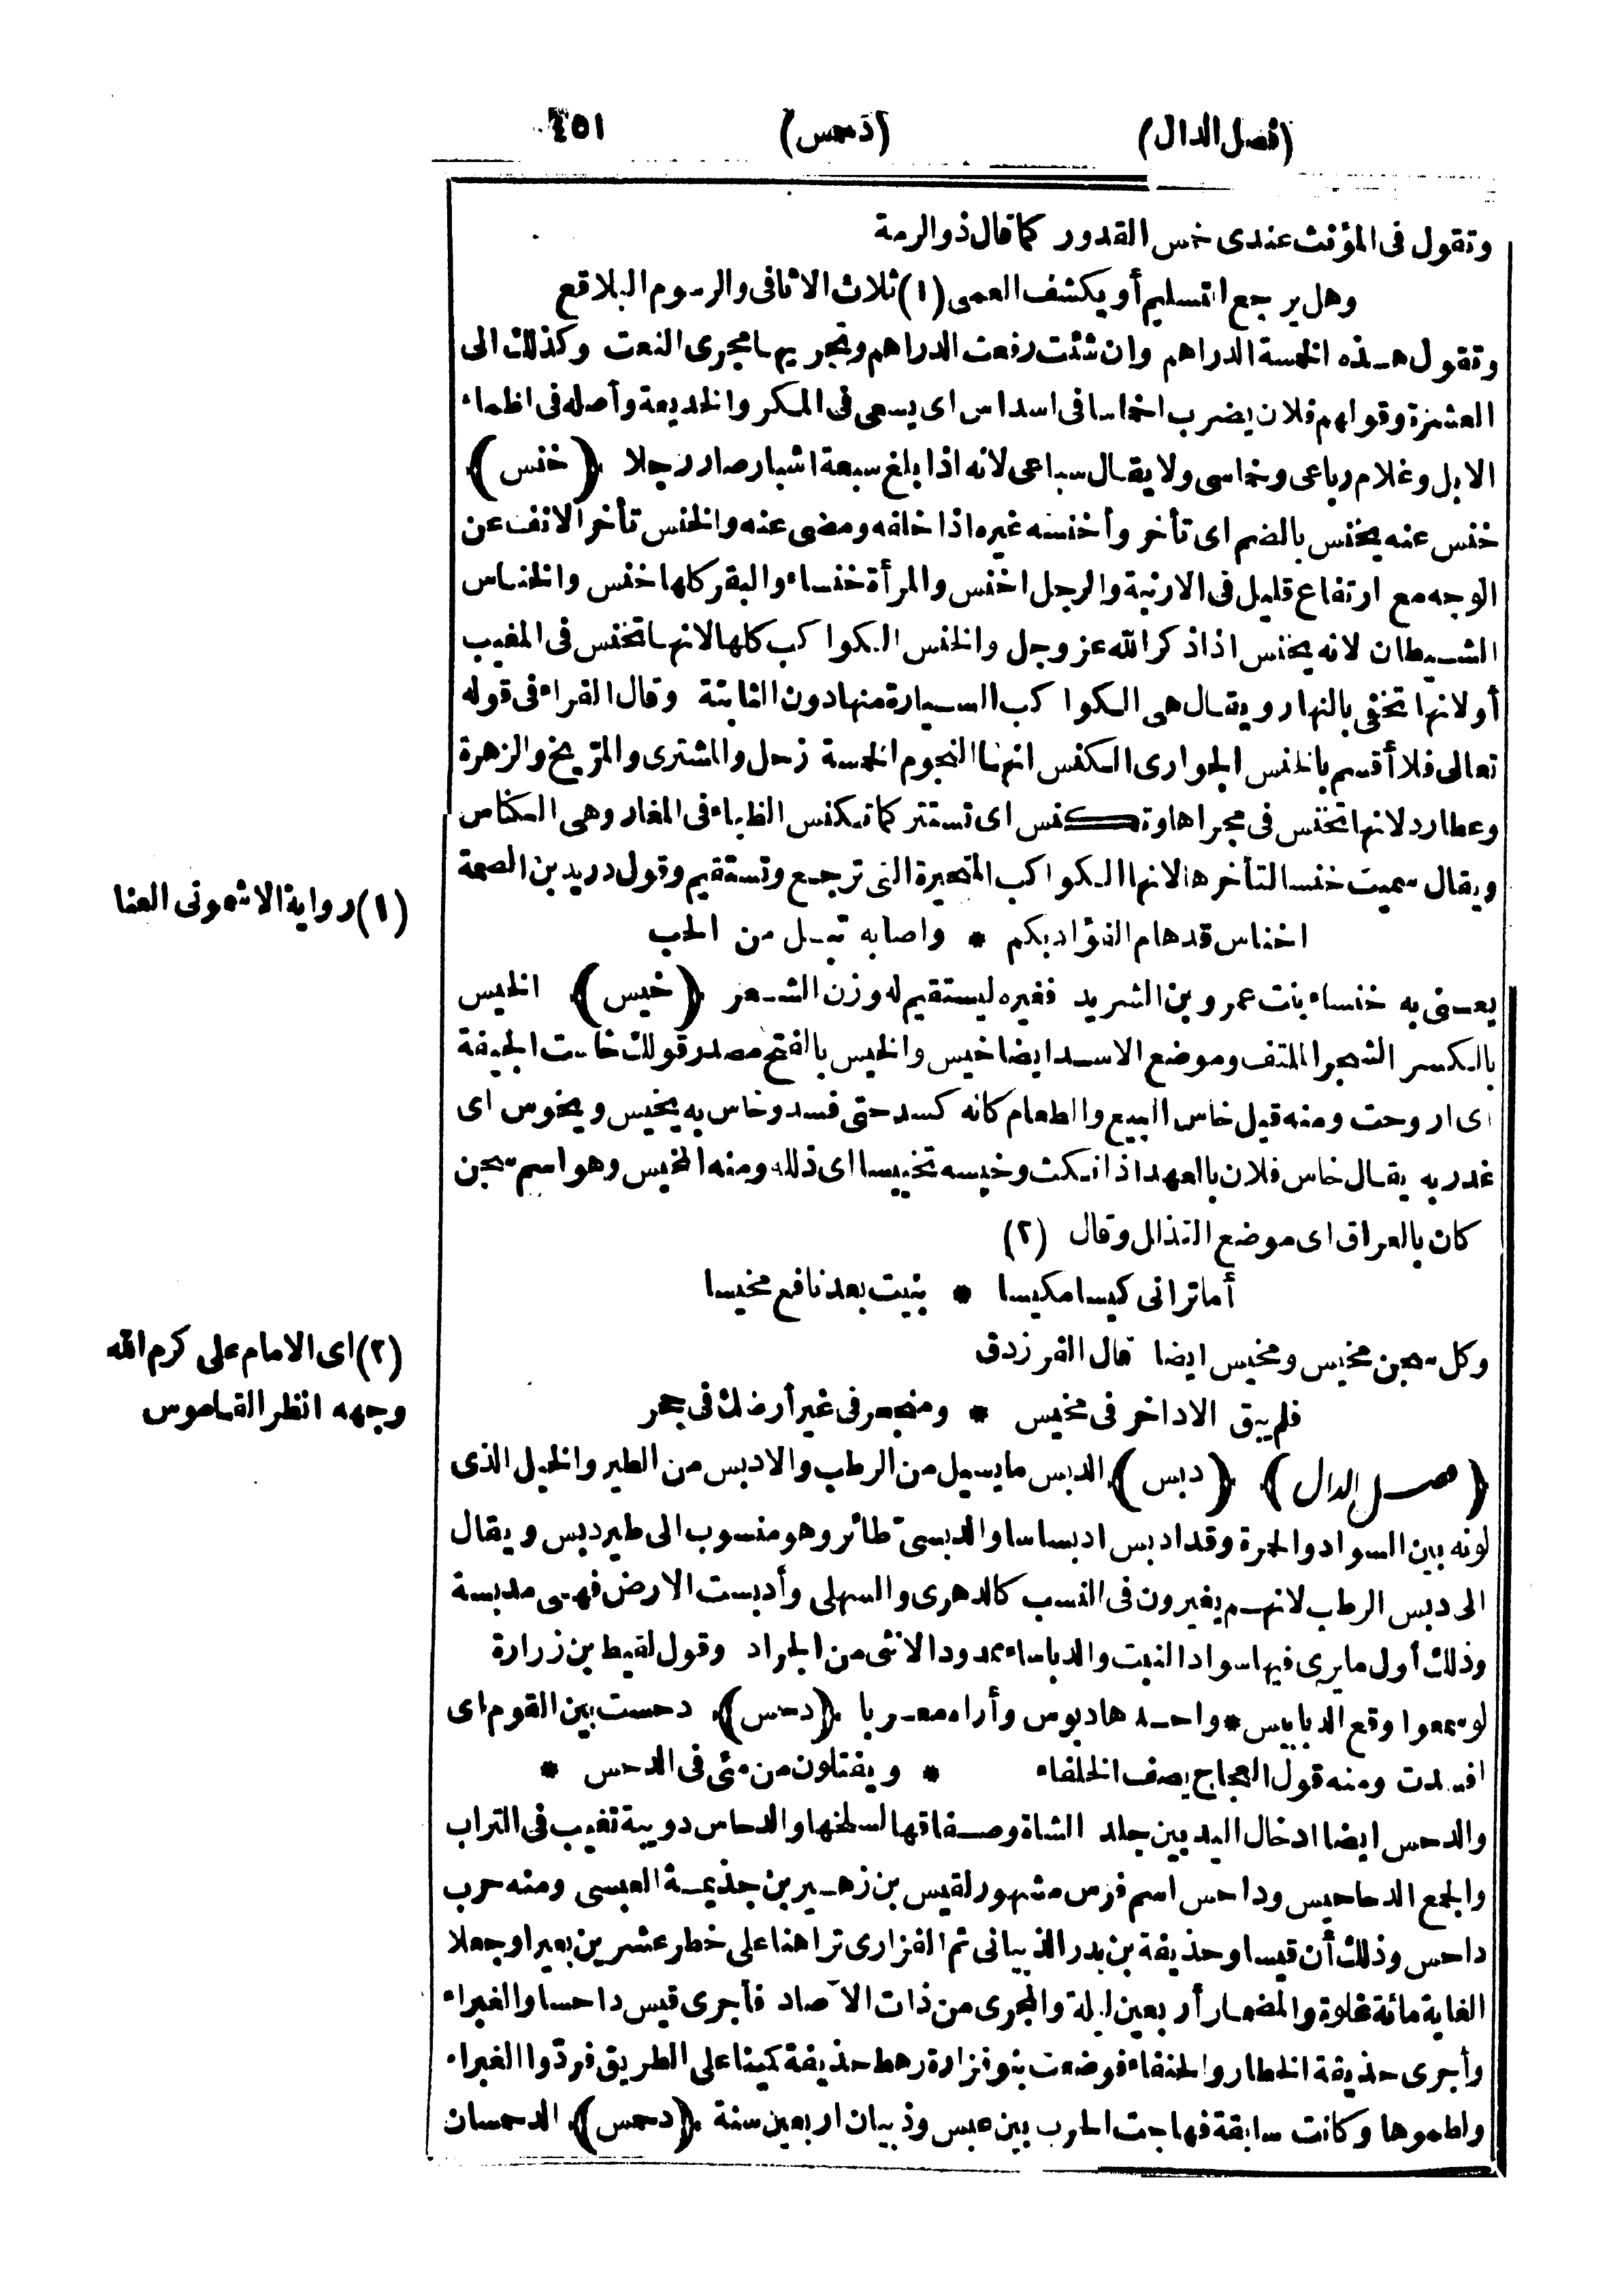 (فصل الدال)
(دحس)
٤٥١
وتقول فى المؤنث عندى خمس القدور كما قال ذو الرمة
وهل يرجع التسليم أو يكشف العمى (١) ثلاث الاثافى والرسوم البلاقع
وتقول هذه الخمسة الدراهم وان شئت رفعت الدراهم وتجريها مجرى النعت وكذلك الى
العشرة وقولهم فلان يضرب اخماسا فى اسداس اى يسعى فى المكر والخديعة وأصله فى اظماء
الابل وغلام رباعى وخماسى ولا يقال سباعى لانه اذا بلغ سبعة اشبار صار رجلا ﴿خنس﴾
خنس عنه يخنس بالضم اى تأخر وأخنسه غيره اذا خلفه ومضى عنه والخنس تأخر الانف عن
الوجه مع ارتفاع قليل فى الارنبة والرجل اخنس والمرأة خنساء والبقر كلها خنس والخناس
الشيطان لانه يخنس اذا ذكر الله عز وجل والخنس الكواكب كلها لانها تخنس فى المغيب
أو لانها تخفى بالنهار ويقال هى الكواكب السيارة منها دون الثابتة وقال الفراء فى قوله
تعالى فلا أقسم بالخنس الجوارى الكنس انها النجوم الخمسة زحل والمشترى والمرّيخ والزهرة
وعطارد لانها تخنس فى مجراها وتكنس اى تستتر كما تكنس الظباء فى المغار وهى الكناس
ويقال سميت خنسا لتأخرها لانها الكواكب المتحيرة التى ترجع وتستقيم وقول دريد بن الصمة
اخناس قد هام الفؤاد بكم * واصابه تبل من الحب
يعنى به خنساء بنت عمرو بن الشريد فغيره ليستقيم له وزن الشعر ﴿خيس﴾ الخيس
بالكسر الشجر الملتف وموضع الاسد ايضا خيس والخيس بالفتح مصدر قولك خاست الجيفة
اى اروحت ومنه قيل خاس البيع والطعام كانه كسد حتى فسد وخاس به يخيس ويخوس اى
غدر به يقال خاس فلان بالعهد اذا نكث وخيسه تخييسا اى ذلله ومنه المخيس وهو اسم سجن
كان بالعراق اى موضع التذلل وقال (٢)
أما ترانى كيسا مكيسا * بنيت بعد نافع مخيسا
وكل سجن مخيس ومخيس ايضا قال الفرزدق
فلم يبق الا داخر فى مخيس * ومنجحر فى غير أرضك فى جحر
﴿فصل الدال﴾ ﴿دبس﴾ الدبس ما يسيل من الرطب والادبس من الطير والخيل الذى
لونه بين السواد والحمرة وقد ادبس ادبساسا والدبسىّ طائر وهو منسوب الى طير دبس ويقال
الى دبس الرطب لانهم يغيرون فى النسب كالدهرى والسهلى وأدبست الارض فهى مدبسة
وذلك أول ما يرى فيها سواد النبت والدباساء ممدود الانثى من الجراد وقول لقيط بن زرارة
لو سمعوا وقع الدبابيس * واحدها دبوس وأراه معربا ﴿دحس﴾ دحست بين القوم اى
افسدت ومنه قول العجاج يصف الخلفاء * ويقتلون من مئى فى الدحس *
والدحس ايضا ادخال اليد بين جلد الشاة وصفاقها لسلخها والدحاس دويبة تغيب فى التراب
والجمع الدحاحيس وداحس اسم فرس مشهور لقيس بن زهير بن جذيمة العبسى ومنه حرب
داحس وذلك أن قيسا وحذيفة بن بدر الذبيانى ثم الفزارى تراهنا على خطر عشرين بعيرا وجعلا
الغاية مائة غلوة والمضمار أربعين ليلة والمجرى من ذات الآصاد فأجرى قيس داحسا والغبراء
وأجرى حذيفة الخطار والحنفاء فوضعت بنو فزارة رهط حذيفة كمينا على الطريق فردّوا الغبراء
ولطموها وكانت سابقة فهاجت الحرب بين عبس وذبيان اربعين سنة ﴿دحمس﴾ الدحمسان
(١) رواية الاشمونى العنا
(٢) اى الامام على كرم الله
وجهه انظر القاموس